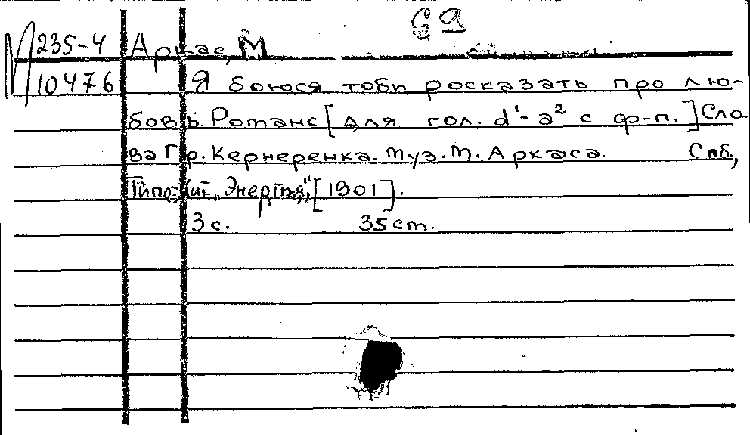 М 235-4 Аркас, М
10476 Я боюся тоби росказать про лю-
бовь. Романс [для гол. d¹-a² с ф-п.] Сло
ва Гр. Кернеренка. Муз. М. Аркаса. Спб,
Типо-лит. "Энергия", [1901].
3 с. 35 cm.